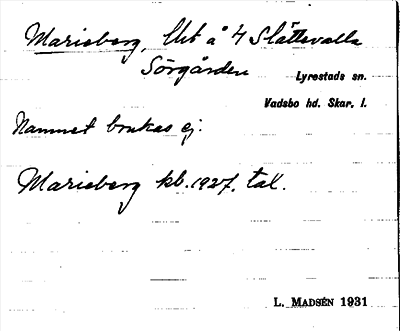 Marieberg, Ut å 4 Slättevalla
Sörgården
Lyrestads sn.
Vadsbo hd. Skar. l.
Namnet brukas ej.
Marieberg kb. 1927, tal.
L. MADSÉN 1931